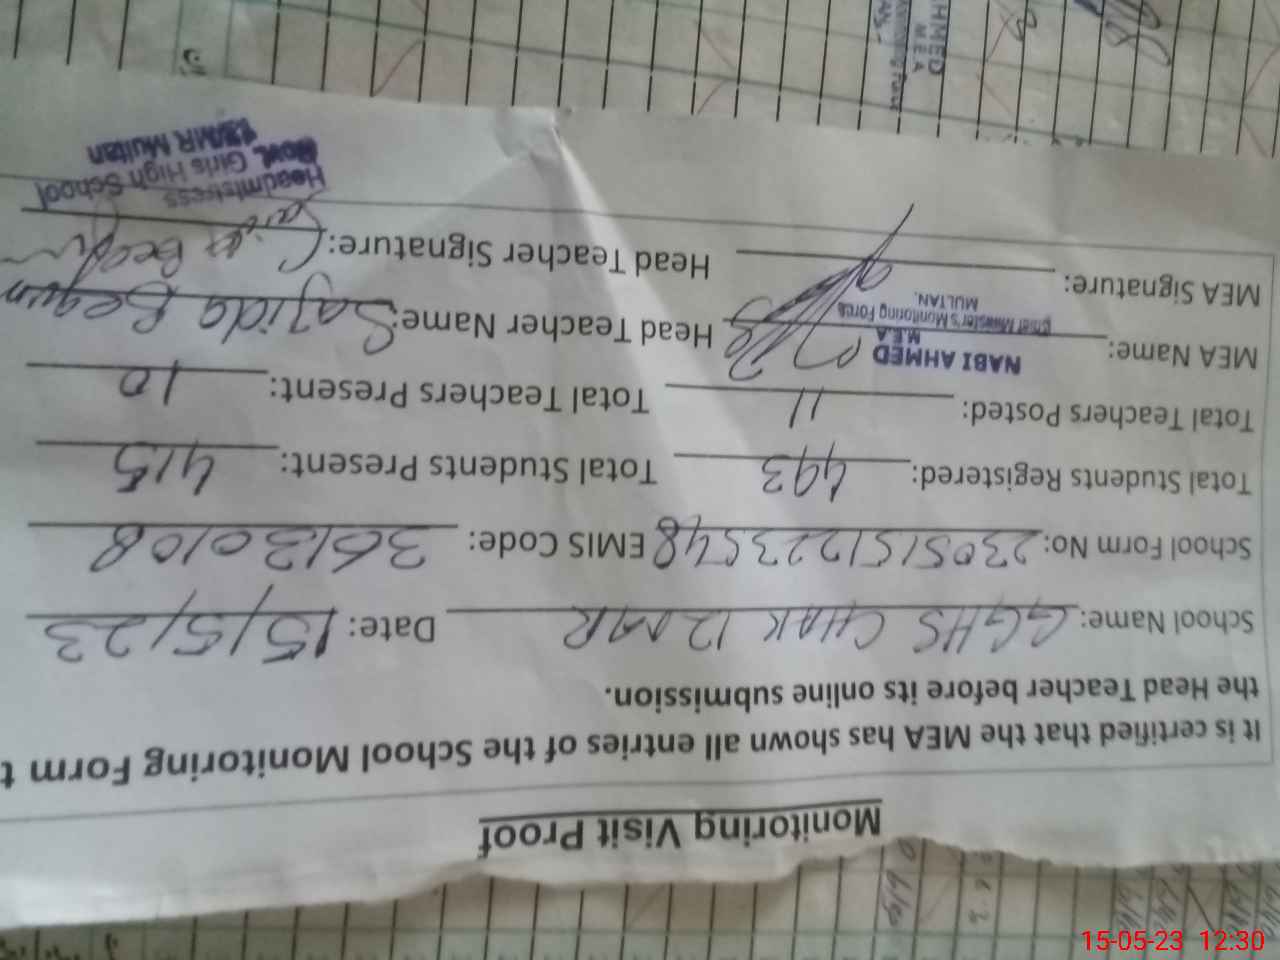 Monitoring Visit Proof
It is certified that the MEA has shown all entries of the School Monitoring Form t
the Head Teacher before its online submission.
School Name: GGHS CHAK 12 MR Date: 15/5/23
School Form No: 2305151223548 EMIS Code: 36130108
Total Students Registered: 493 Total Students Present: 415
Total Teachers Posted: 11 Total Teachers Present: 10
MEA Name: NABI AHMED Head Teacher Name: Sajida Begum
M.E.A
Chief Minister's Monitoring Force
MULTAN.
MEA Signature: Head Teacher Signature: Sajida Begum
Headmistress
Govt. Girls High School
12/MR Multan
15-05-23 12:30